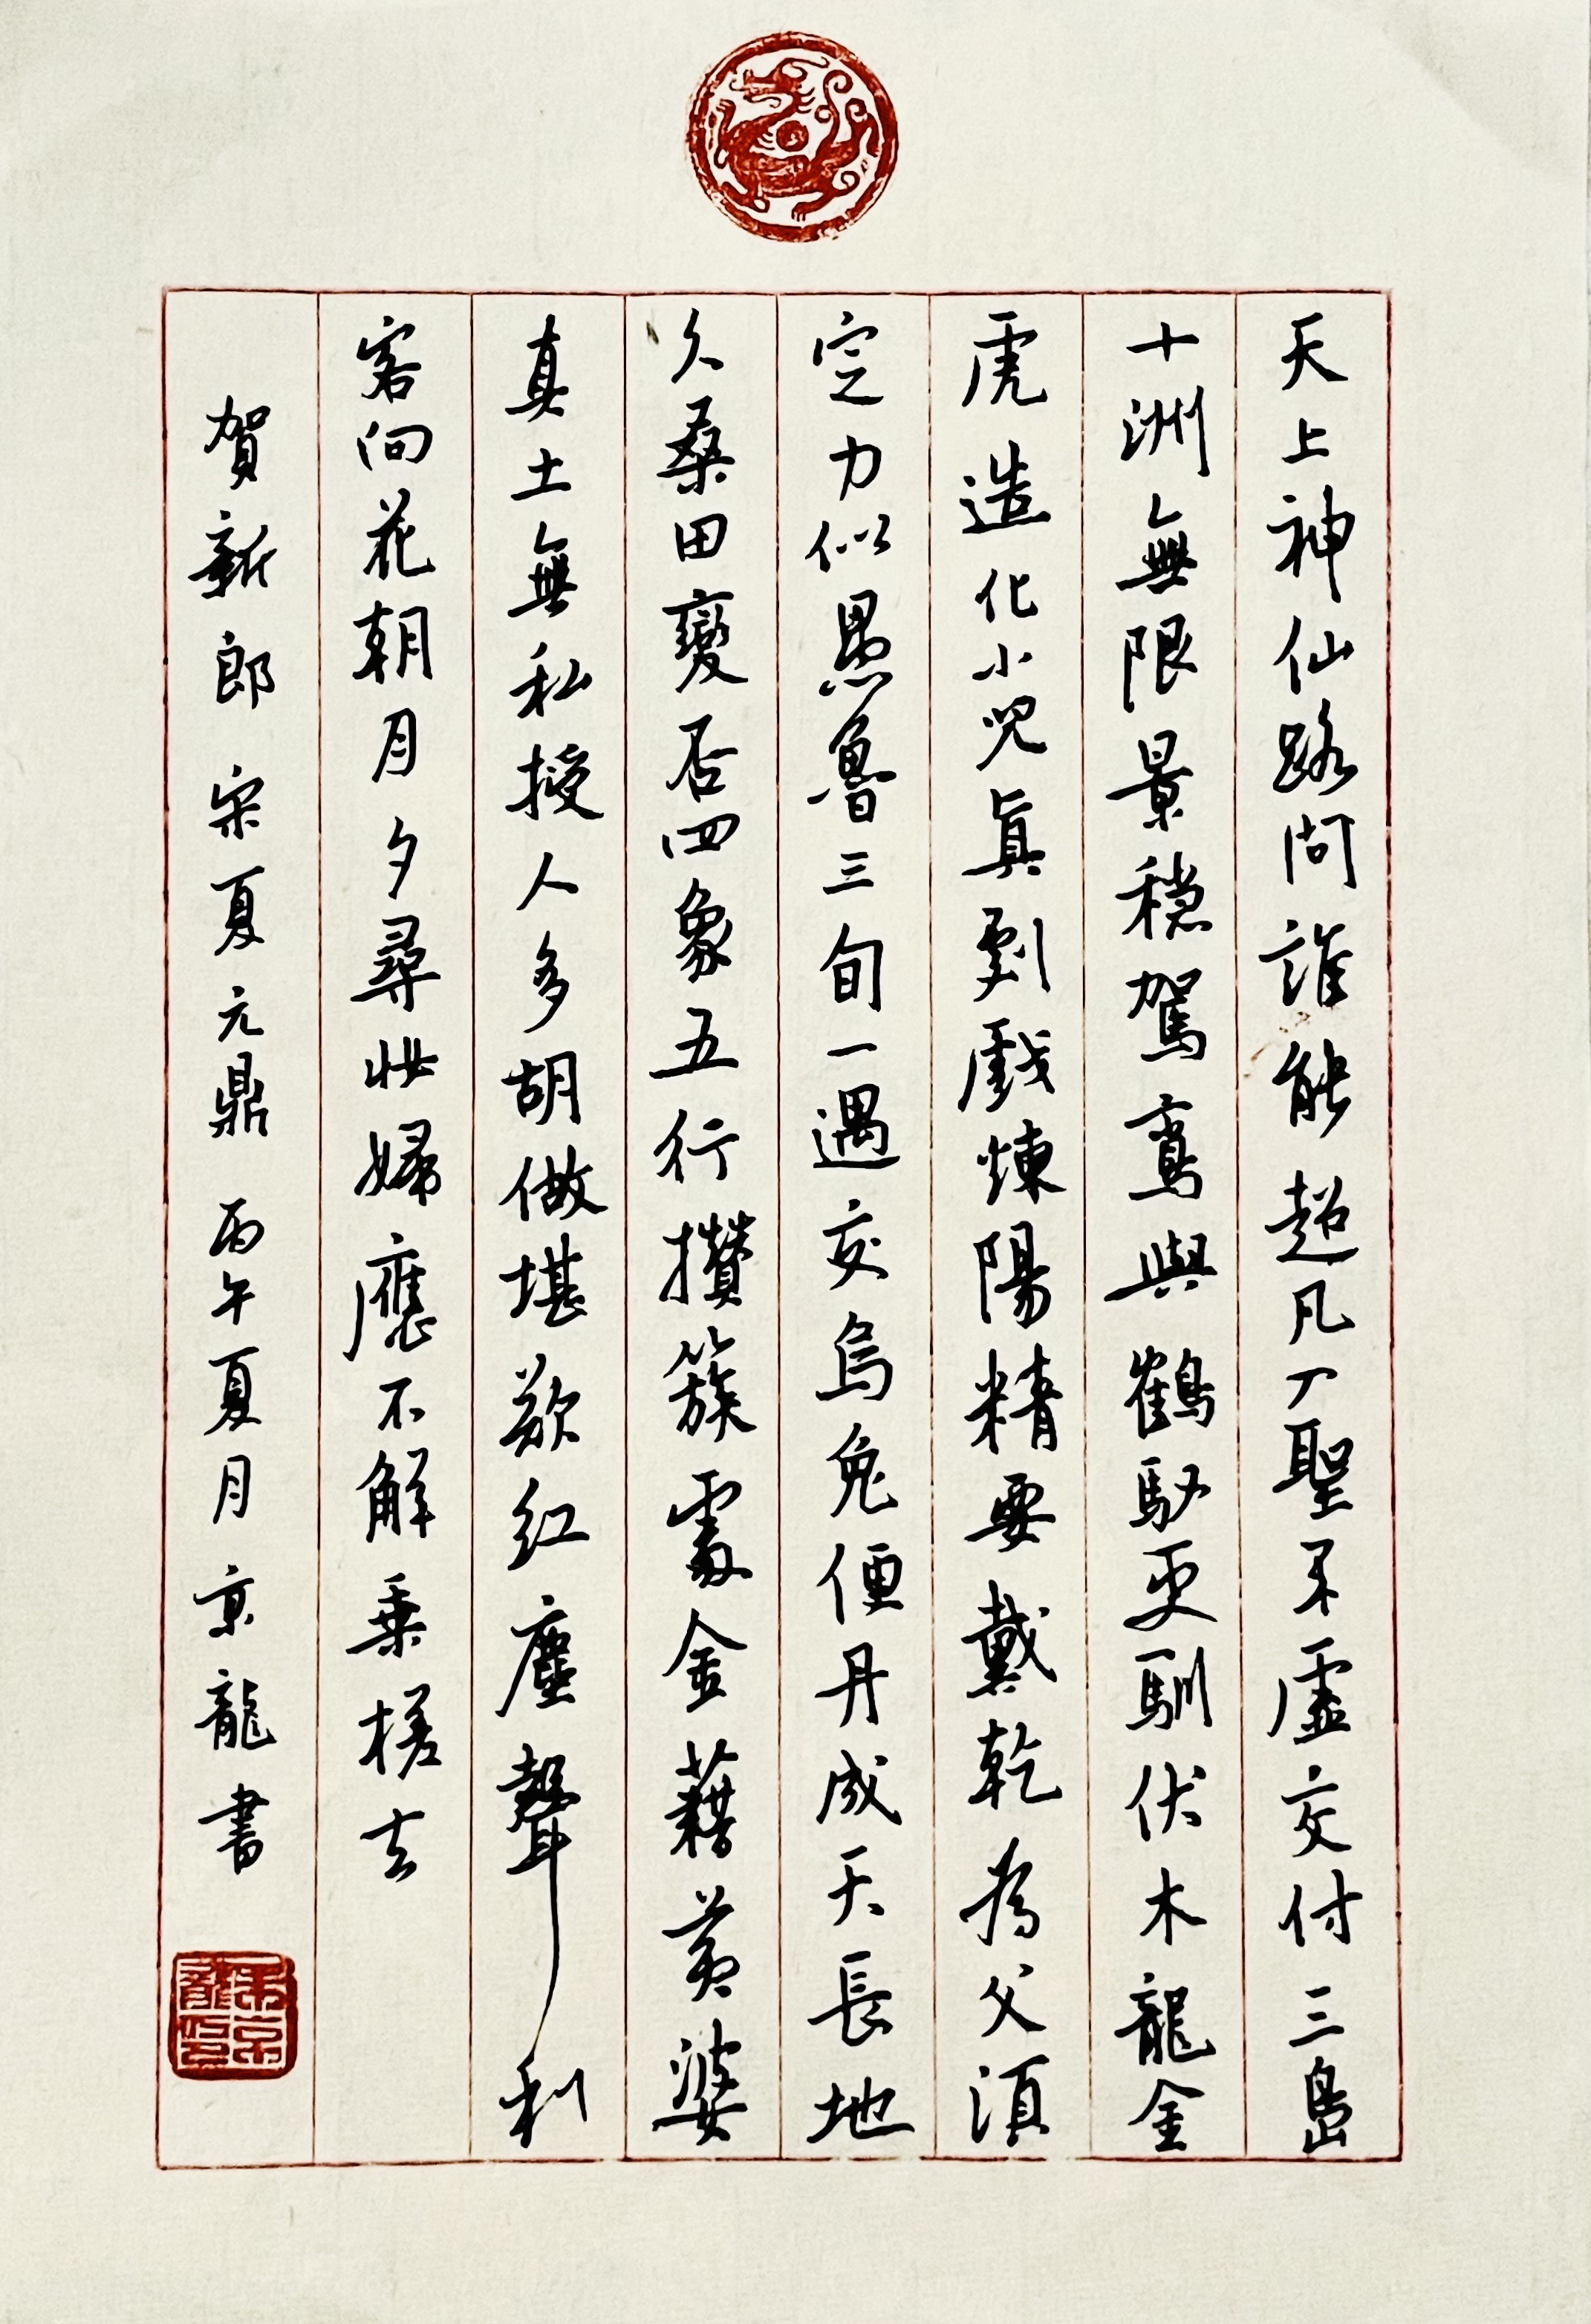 天上神仙路問誰能超凡入聖不虛交付三島
十洲無限景穩駕鸞與鶴馭更馴伏木龍金
虎造化小兒真劇戲煉陽精要戴乾為父須
定力似愚魯三旬一遇交烏兔便丹成天長地
久桑田變否四象五行攢簇處金藉黃婆
真土無私授人多胡做堪歎紅塵聲利
客向花朝月夕尋妝婦應不解乘槎去
賀新郎 宋夏元鼎 丙午夏月京龍書